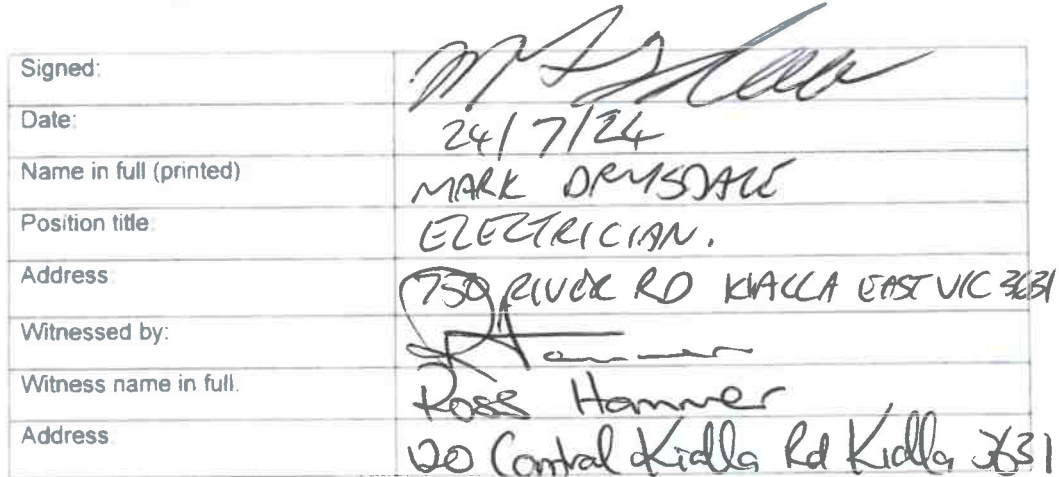 Signed:
Date: 24/7/24
Name in full (printed) MARK DRYSDALE
Position title: ELECTRICIAN.
Address: 750 RIVER RD KIALLA EAST VIC 3631
Witnessed by:
Witness name in full. Ross Hammer
Address: Central Kialla Rd Kialla 3631